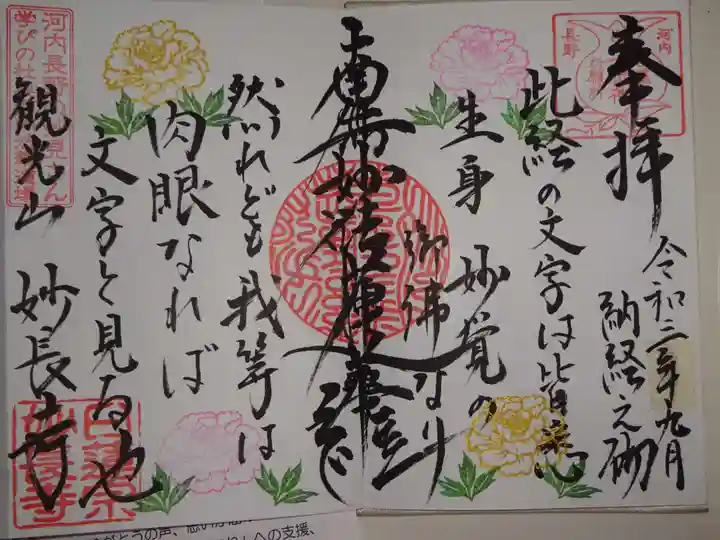 奉拝
令和三年九月
納経之砌
此経の文字は皆悉
生身 妙覚の
御佛なり
南無妙法蓮華経
然れども我等は
肉眼なれば
文字と見る也
観光山 妙長寺
河内
長野
河内長野
学びの社
への支援、